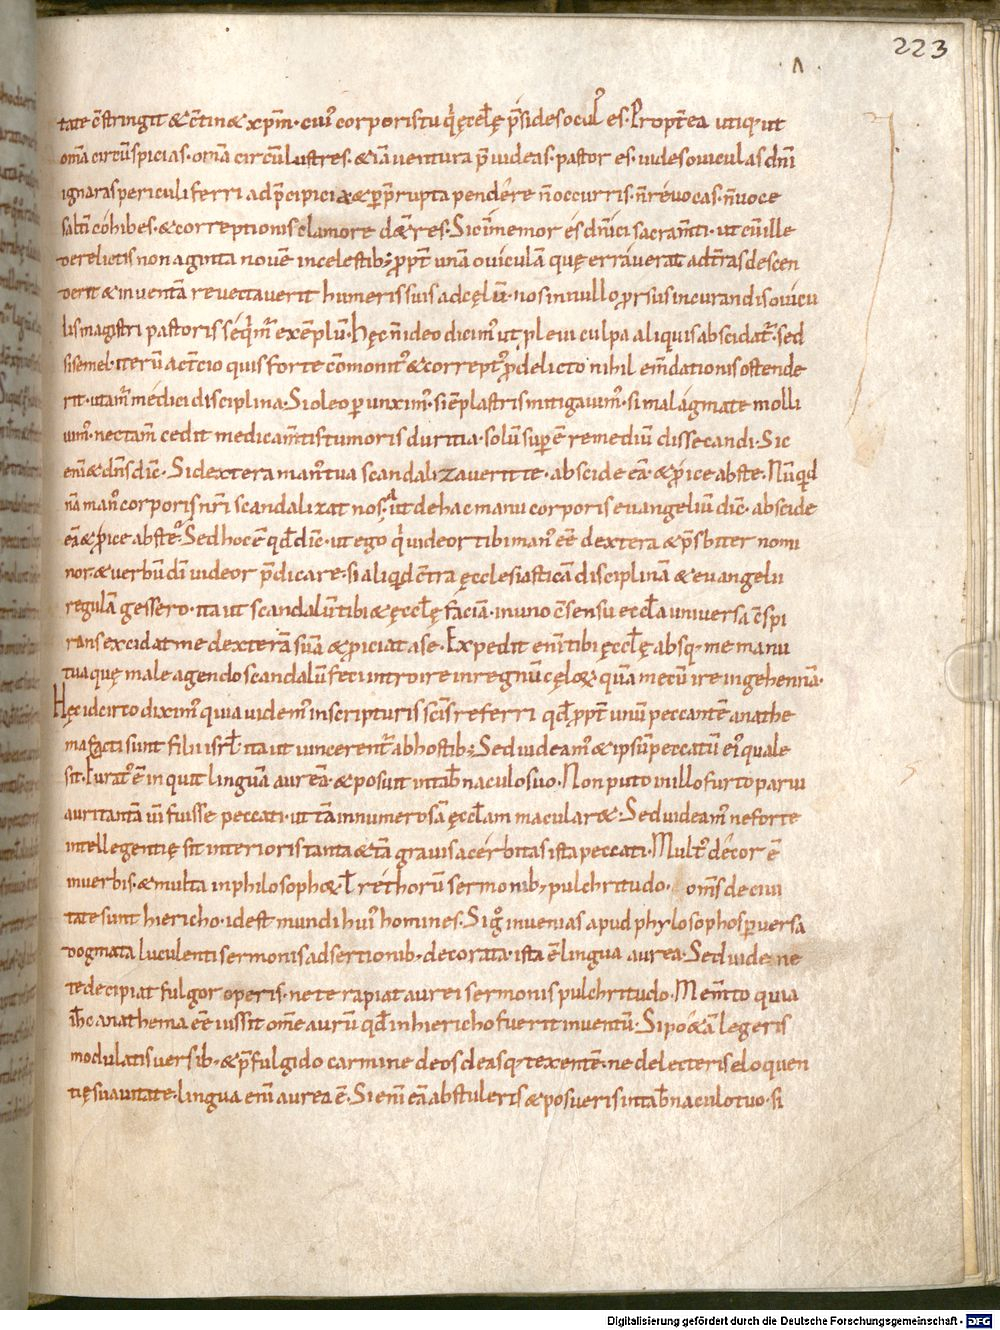 223
tate c̄stringit & c̄tin& xp̄m · cui' corporis tu q̇ ęccl̄ę p̄sides ocul' es · Propt̄ea utiq; ut
om̄a circūspicias · om̄a circūlustres · & iā ventura p̄ videas · pastor es · vides oviculas dn̄i
ignaras periculi ferri ad p̄cipicia & p̄rupta pendere n̄ occurris · n̄ revocas · n̄ voce
saltī cohibes · & correptionis clamore det̄res · Sic īmemor es dn̄ici sacram̄ti · ut cū ille
derelictis nonaginta novē in celestib; ppt̄ unā oviculam quę erraverat ad t̄ras descen
derit & inventā revectaverit humeris suis ad cęlū · nos in nullo prorsus in curandis ovicu
lis magistri pastoris seq̇m̄ exemplū · hęc n̄ ideo dicim' ut p levi culpa aliquis abscidat̄ · sed
si semel · iterū ac t̄cio quis forte c̄monit' & corrept' p delicto nihil em̄dationis ostende
rit · utam̄ medici disciplina · Si oleo perunxim' · si ēplastris mitigavim' · si malagmate molli
vim' · nec tam̄ cedit medicam̄tis tumoris duritia · solū sup̄ ē remediū dissecandi · Sic
enī & dn̄s dic̄ · Si dextera man' tua scandalizaverit te · abscide eā · & pice abs te · Nūquid
nā man' corporis nr̄i scandalizat nos · aut de hac manu corporis evangeliū dic̄ · abscide
eā & pice abs te · Sed hoc ē qd̄ dic̄ · ut ego q̇ videor tibi man' eē dextera & p̄sbiter nomi
nor & verbū dī videor p̄dicare · si aliquid c̄tra ęcclesiasticā disciplinā & evangelii
regulā gessero · ita ut scandalū tibi & ęccl̄ę faciā · in uno c̄sensu eccl̄a universa c̄spi
rans excidat me dexterā suā & piciat a se · Expedit enī tibi ęccl̄ę absq; me manu
tua quę male agendo scandalū feci introire in regnū cęlo₹ quā mecū ire in gehennā ·
Hęc idcirco dixim' quia videm' in scripturis sc̄is referri qd̄ ppt̄ unū peccantē anathe
ma facti sunt filii isrl̄ ita ut vincerent̄ ab hostib; Sed videam' & ipsū peccatū ei' quale
sit · Furat' ē inquit linguā aureā · & posuit in tab̄naculo suo · Non puto in illo furto parvi
auri tantā vī fuisse peccati · ut tā innumerosā ęccl̄am macular& · Sed videam' ne forte
intellegentię sit interioris tanta & tā gravis acerbitas ista peccati · Mult' decor ē
in verbis · & multa in philosophoꝝ vl̄ rethorū sermonib; pulchritudo · om̄s de civi
tate sunt hiericho · id est mundi hui' homines · Si g̊ invenias apud phylosophos p̄versa
dogmata luculenti sermonis adsertionib; decorata · ista ē lingua aurea · Sed vide ne
te decipiat fulgor operis · ne te rapiat aurei sermonis pulchritudo · Mem̄to quia
ih̄c anathema eē iussit om̄e aurū qd̄ in hiericho fuerit inventū · Si po&ā legeris
modulatis versib; & p̄fulgido carmine deos deasq; texentē · ne delecteris eloquen
tię suavitate · lingua enī aurea ē · Si enī eā abstuleris & posueris in tab̄naculo tuo · si
Digitalisierung gefördert durch die Deutsche Forschungsgemeinschaft - DFG